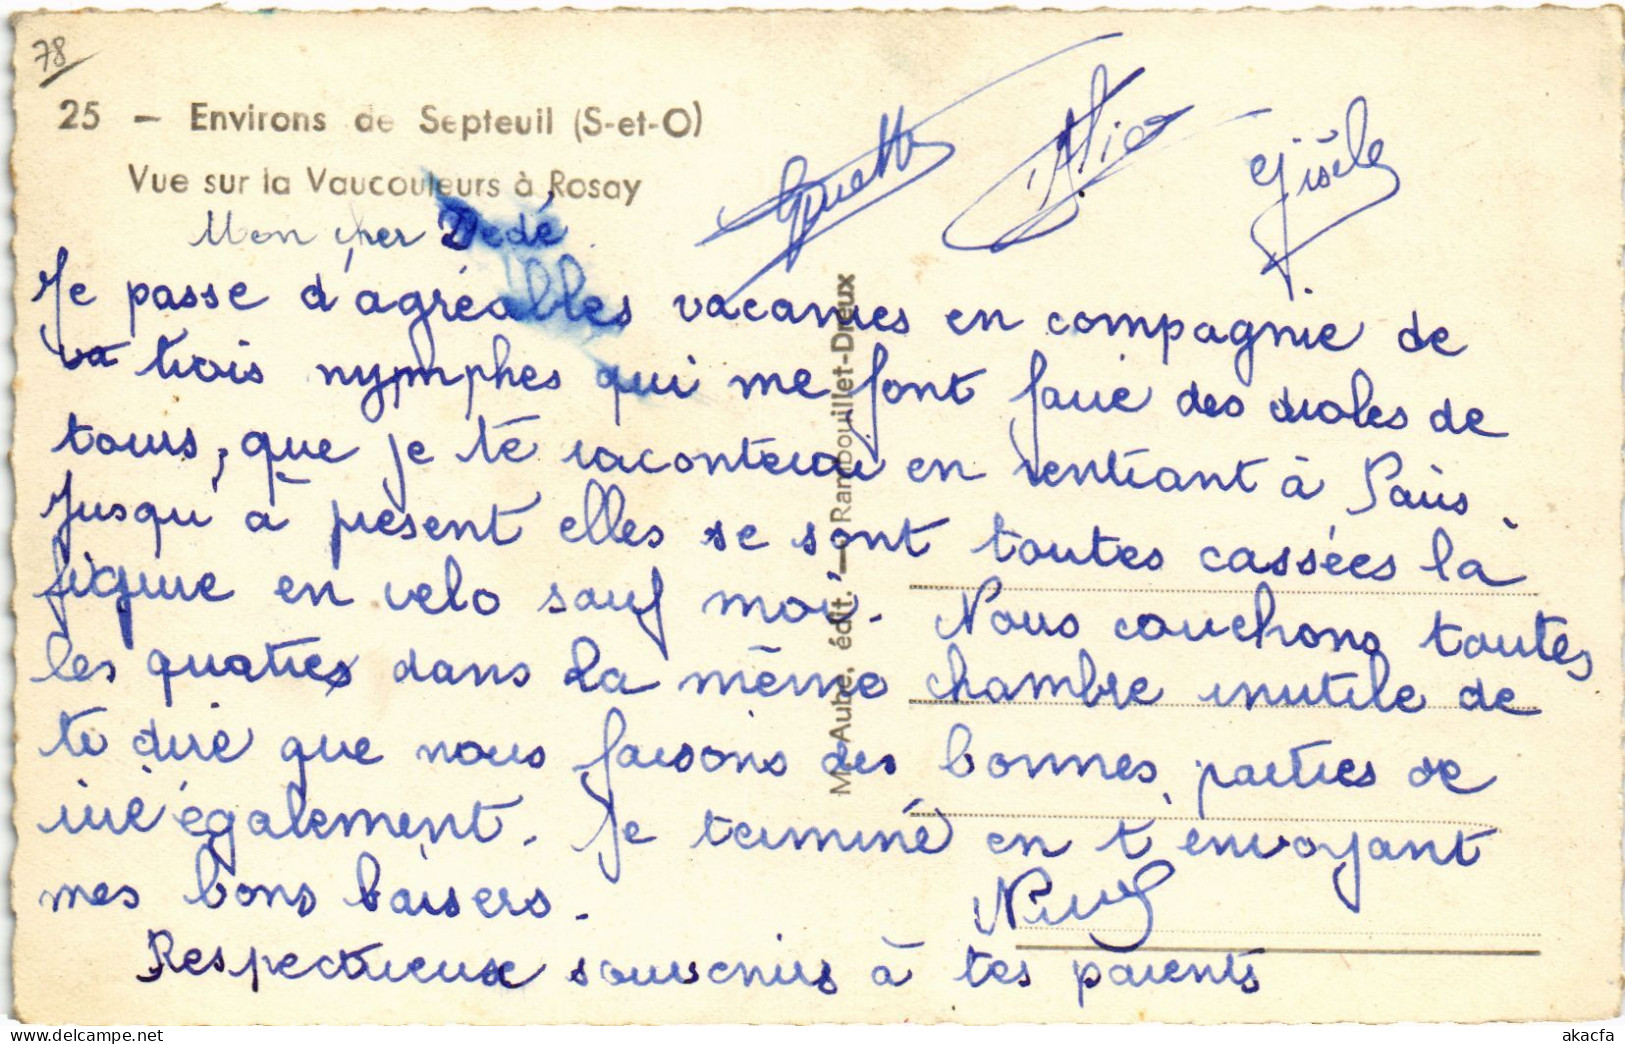 78
25 — Environs de Septeuil (S-et-O)
Vue sur la Vaucouleurs à Rosay
Gisèle
Mon cher Dédé
Je passe d'agréables vacances en compagnie de
trois nymphes qui me font faire des droles de
tours, que je te raconterai en rentrant à Paris.
Jusqu'à présent elles se sont toutes cassées la
figure en velo sauf moi. Nous couchons toutes
les quatres dans la même chambre inutile de
te dire que nous faisons des bonnes parties de
rire également. Je terminé en t'envoyant
mes bons baisers.
Respectueux souvenirs à tes parents
M. Aubé, édit. — Rambouillet-Dreux
akacfa